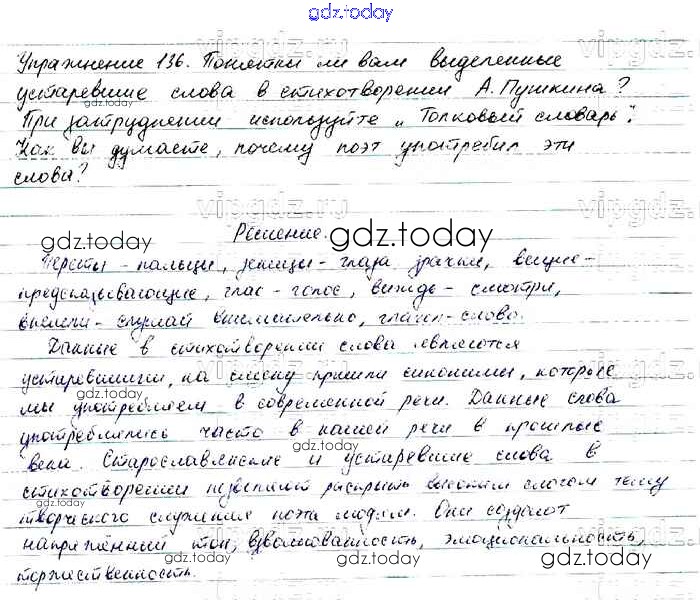 gdz.today
Упражнение 136. Понятны ли вам выделенные
устаревшие слова в стихотворении А. Пушкина?
При затруднении используйте „Толковый словарь".
Как вы думаете, почему поэт употребил эти
слова?
Решение.
Персты - пальцы, зеницы - глаза, зрачки, вещие -
предсказывающие, глас - голос, виждь - смотри,
внемли - слушай внимательно, глагол - слово.
Данные в стихотворении слова являются
устаревшими, на смену пришли синонимы, которые
мы употребляем в современной речи. Данные слова
употреблялись часто в нашей речи в прошлые
века. Старославянские и устаревшие слова в
стихотворении позволяют раскрыть высоким слогом тему
творческого служения поэта людям. Они создают
напряжённый тон, взволнованность, эмоциональность,
торжественность.